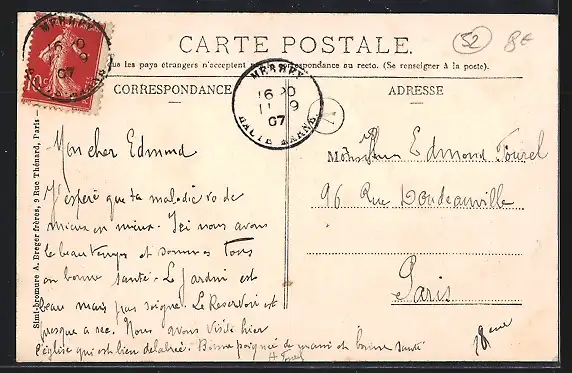 CARTE POSTALE.
52
8€
Tous les pays étrangers n'acceptent pas la correspondance au recto. (Se renseigner à la poste).
CORRESPONDANCE
ADRESSE
MERREY
16 30
11 9
07
HAUTE MARNE
MERREY
07
10
Simi-bromure A. Breger frères, 9 Rue Thénard, Paris
Mon cher Edmond
J'espère que ta maladie va de
mieux en mieux. Ici nous avons
le beau temps et sommes tous
en bonne santé. Le jardin est
beau mais pas soigné. Le Reservoir est
presque a sec. Nous avons visité hier
l'église qui est bien delabrée. Bonne poignée de main et bonne santé
Monsieur Edmond Tourel
96 Rue Doudeauville
Paris
18eme